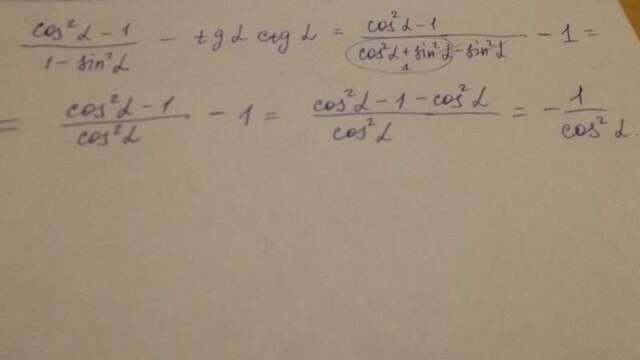 cos²α - 1 / 1 - sin²α - tg α ctg α = cos²α - 1 / cos²α + sin²α - sin²α - 1 =
1
= cos²α - 1 / cos²α - 1 = cos²α - 1 - cos²α / cos²α = - 1 / cos²α.